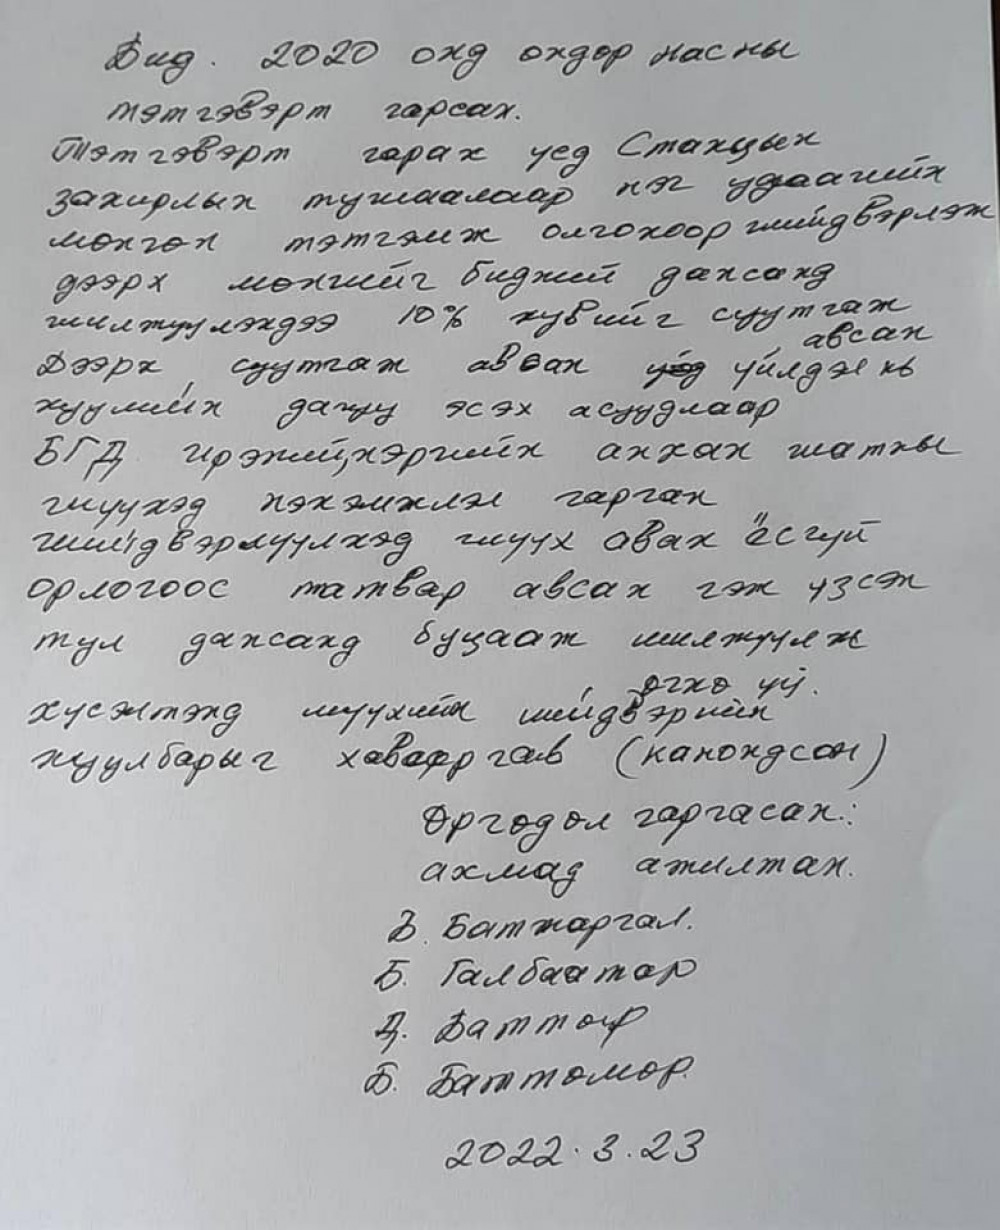 Бид. 2020 онд өндөр насны
тэтгэвэрт гарсан.
Тэтгэвэрт гарах үед Станцын
захирлын тушаалаар нэг удаагийн
мөнгөн тэтгэмж олгохоор шийдвэрлэж
дээрх мөнгийг бидний дансанд
шилжүүлэхдээ 10% хувийг суутгаж
авсан
Дээрх суутгаж авсан үйлдэл нь
хуулийн дагуу эсэх асуудлаар
БГД иргэний хэргийн анхан шатны
шүүхэд нэхэмжлэл гарган
шийдвэрлүүлхэд шүүх авах ёсгүй
орлогоос татвар авсан гэж үзсэн
тул дансанд буцааж шилжүүлж
өгнө үү.
хүсэлтэнд шүүхийн шийдвэрийн
хуулбарыг хавсаргав (канондсон)
Өргөдөл гаргасан:
ахмад ажилтан.
Б. Батжаргал.
Б. Галбаатар
Д. Баттөр
Б. Баттөмөр.
2022.3.23